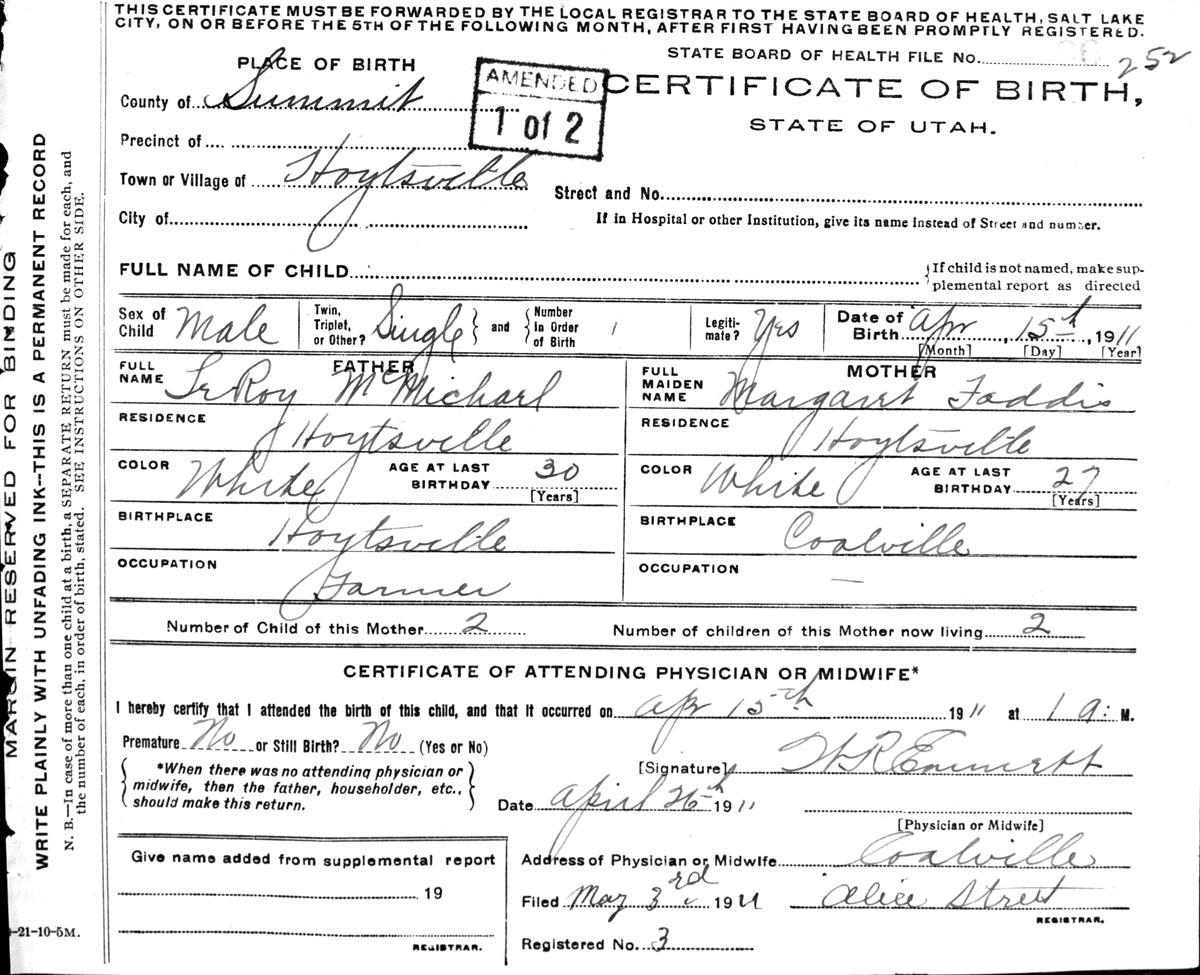 THIS CERTIFICATE MUST BE FORWARDED BY THE LOCAL REGISTRAR TO THE STATE BOARD OF HEALTH, SALT LAKE
CITY, ON OR BEFORE THE 5TH OF THE FOLLOWING MONTH, AFTER FIRST HAVING BEEN PROMPTLY REGISTERED.
STATE BOARD OF HEALTH FILE No. 252
PLACE OF BIRTH
AMENDED
1 of 2
CERTIFICATE OF BIRTH,
STATE OF UTAH.
County of Summit
Precinct of
Town or Village of Hoytsville
Street and No.
City of
If in Hospital or other Institution, give its name instead of Street and number.
FULL NAME OF CHILD
{If child is not named, make sup-
plemental report as directed
Sex of Child Male
Twin, Triplet, or Other? Single } and { Number In Order of Birth 1
Legiti-mate? Yes
Date of Birth Apr 15th, 1911
[Month] [Day] [Year]
FATHER
FULL NAME LeRoy McMichael
MOTHER
FULL MAIDEN NAME Margaret Faddis
RESIDENCE Hoytsville
RESIDENCE Hoytsville
COLOR White AGE AT LAST BIRTHDAY 30 [Years]
COLOR White AGE AT LAST BIRTHDAY 27 [Years]
BIRTHPLACE Hoytsville
BIRTHPLACE Coalville
OCCUPATION Farmer
OCCUPATION —
Number of Child of this Mother 2
Number of children of this Mother now living 2
CERTIFICATE OF ATTENDING PHYSICIAN OR MIDWIFE*
I hereby certify that I attended the birth of this child, and that it occurred on Apr 15th 1911 at 1 a. M.
Premature No or Still Birth? No (Yes or No)
[Signature] W R Emmett
*When there was no attending physician or
midwife, then the father, householder, etc.,
should make this return.
Date April 26th 1911
[Physician or Midwife]
Give name added from supplemental report
19
REGISTRAR.
Address of Physician or Midwife Coalville
Filed May 3rd 1911 Alice Street
REGISTRAR.
Registered No. 3
MARGIN RESERVED FOR BINDING
WRITE PLAINLY WITH UNFADING INK--THIS IS A PERMANENT RECORD
N. B.—In case of more than one child at a birth, a SEPARATE RETURN must be made for each, and
the number of each, in order of birth, stated. SEE INSTRUCTIONS ON OTHER SIDE.
-21-10-5M.